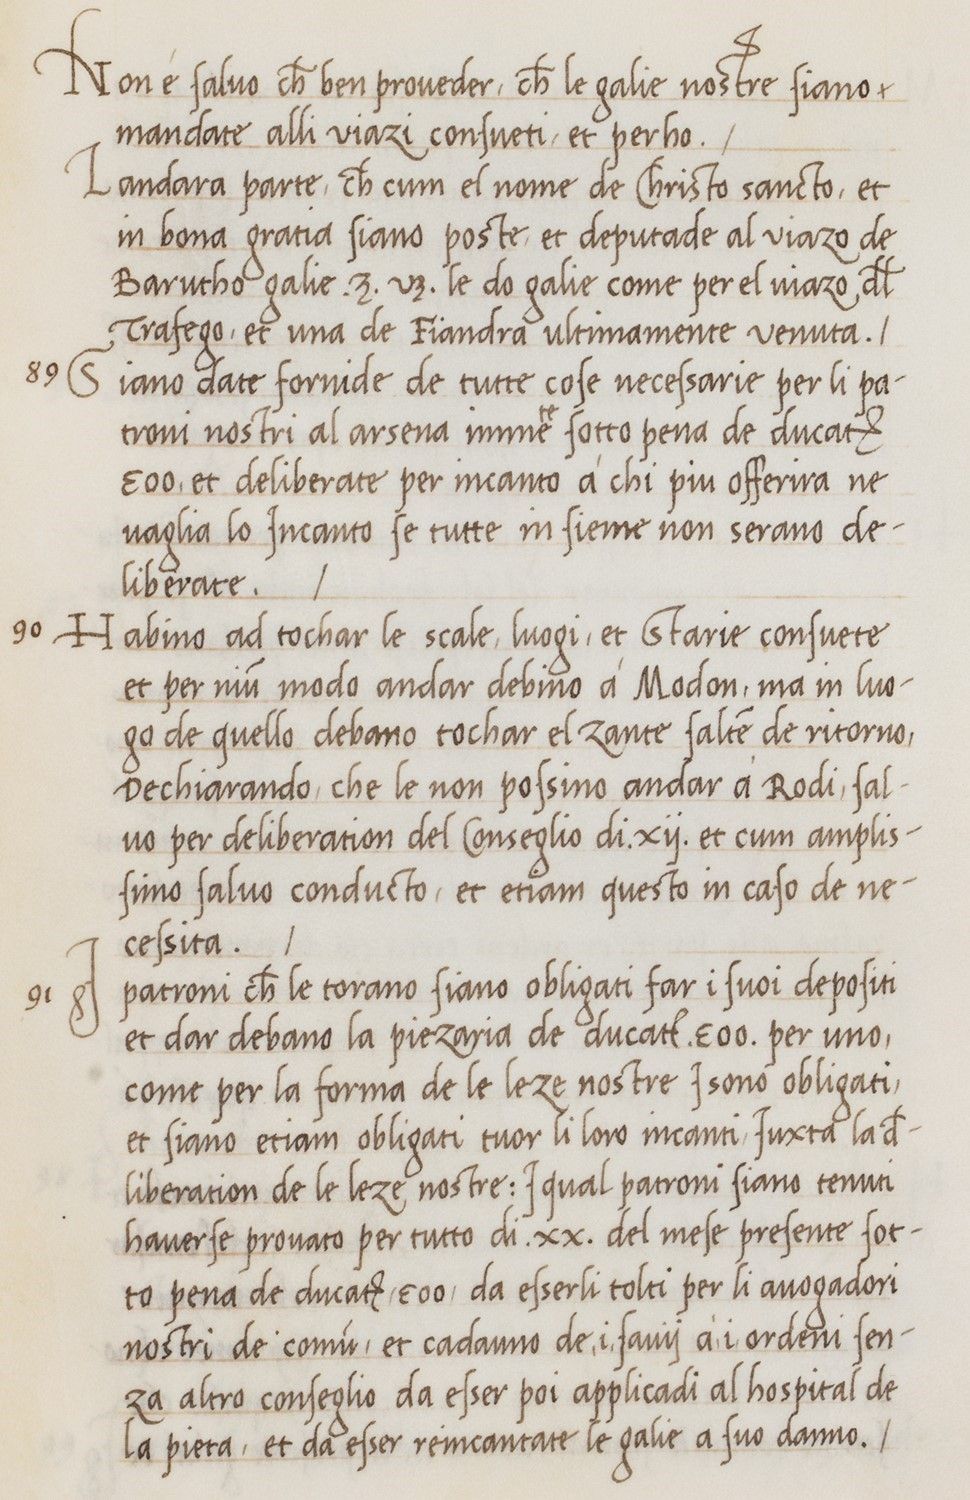 Non é salvo ch̄ ben proveder, ch̄ le galie nostre siano
mandate alli viazi consueti, et perho. /
Landara parte, ch̄ cum el nome de Christo sancto, et
in bona gratia siano poste, et deputade al viazo de
Barutho galie .3. vȝ. le do galie come per el viazo dl̄l
Trafego, et una de Fiandra ultimamente venuta. /
89 Siano date fornide de tutte cose necessarie per li pa-
troni nostri al arsena immete sotto pena de ducatȝ
500, et deliberate per incanto á chi piu offerira ne
vaglia lo Incanto se tutte in sieme non serano de-
liberate. /
90 Habino ad tochar le scale, luogi, et Starie consuete
et per niū modo andar debino á Modon, ma in luo-
go de quello debano tochar el Zante saltē de ritorno,
Dechiarando, che le non possino andar á Rodi, sal-
vo per deliberation del Conseglio di .xij. et cum amplis-
simo salvo conducto, et etiam questo in caso de ne-
cessita. /
91 I patroni ch̄ le torano siano obligati far i suoi depositi
et dar debano la piezaria de ducatȝ .500. per uno,
come per la forma de le leze nostre I sono obligati,
et siano etiam obligati tuor li loro incanti, Iuxta la d̄-
liberation de le leze nostre: I qual patroni siano tenuti
haverse provato per tutto di .xx. del mese presente sot-
to pena de ducatȝ, 500, da esserli tolti per li avogadori
nostri de comū, et cadauno de, i, savij á, i, ordeni sen-
za altro conseglio da esser poi applicadi al hospital de
la pieta, et da esser reincantate le galie a suo danno. /